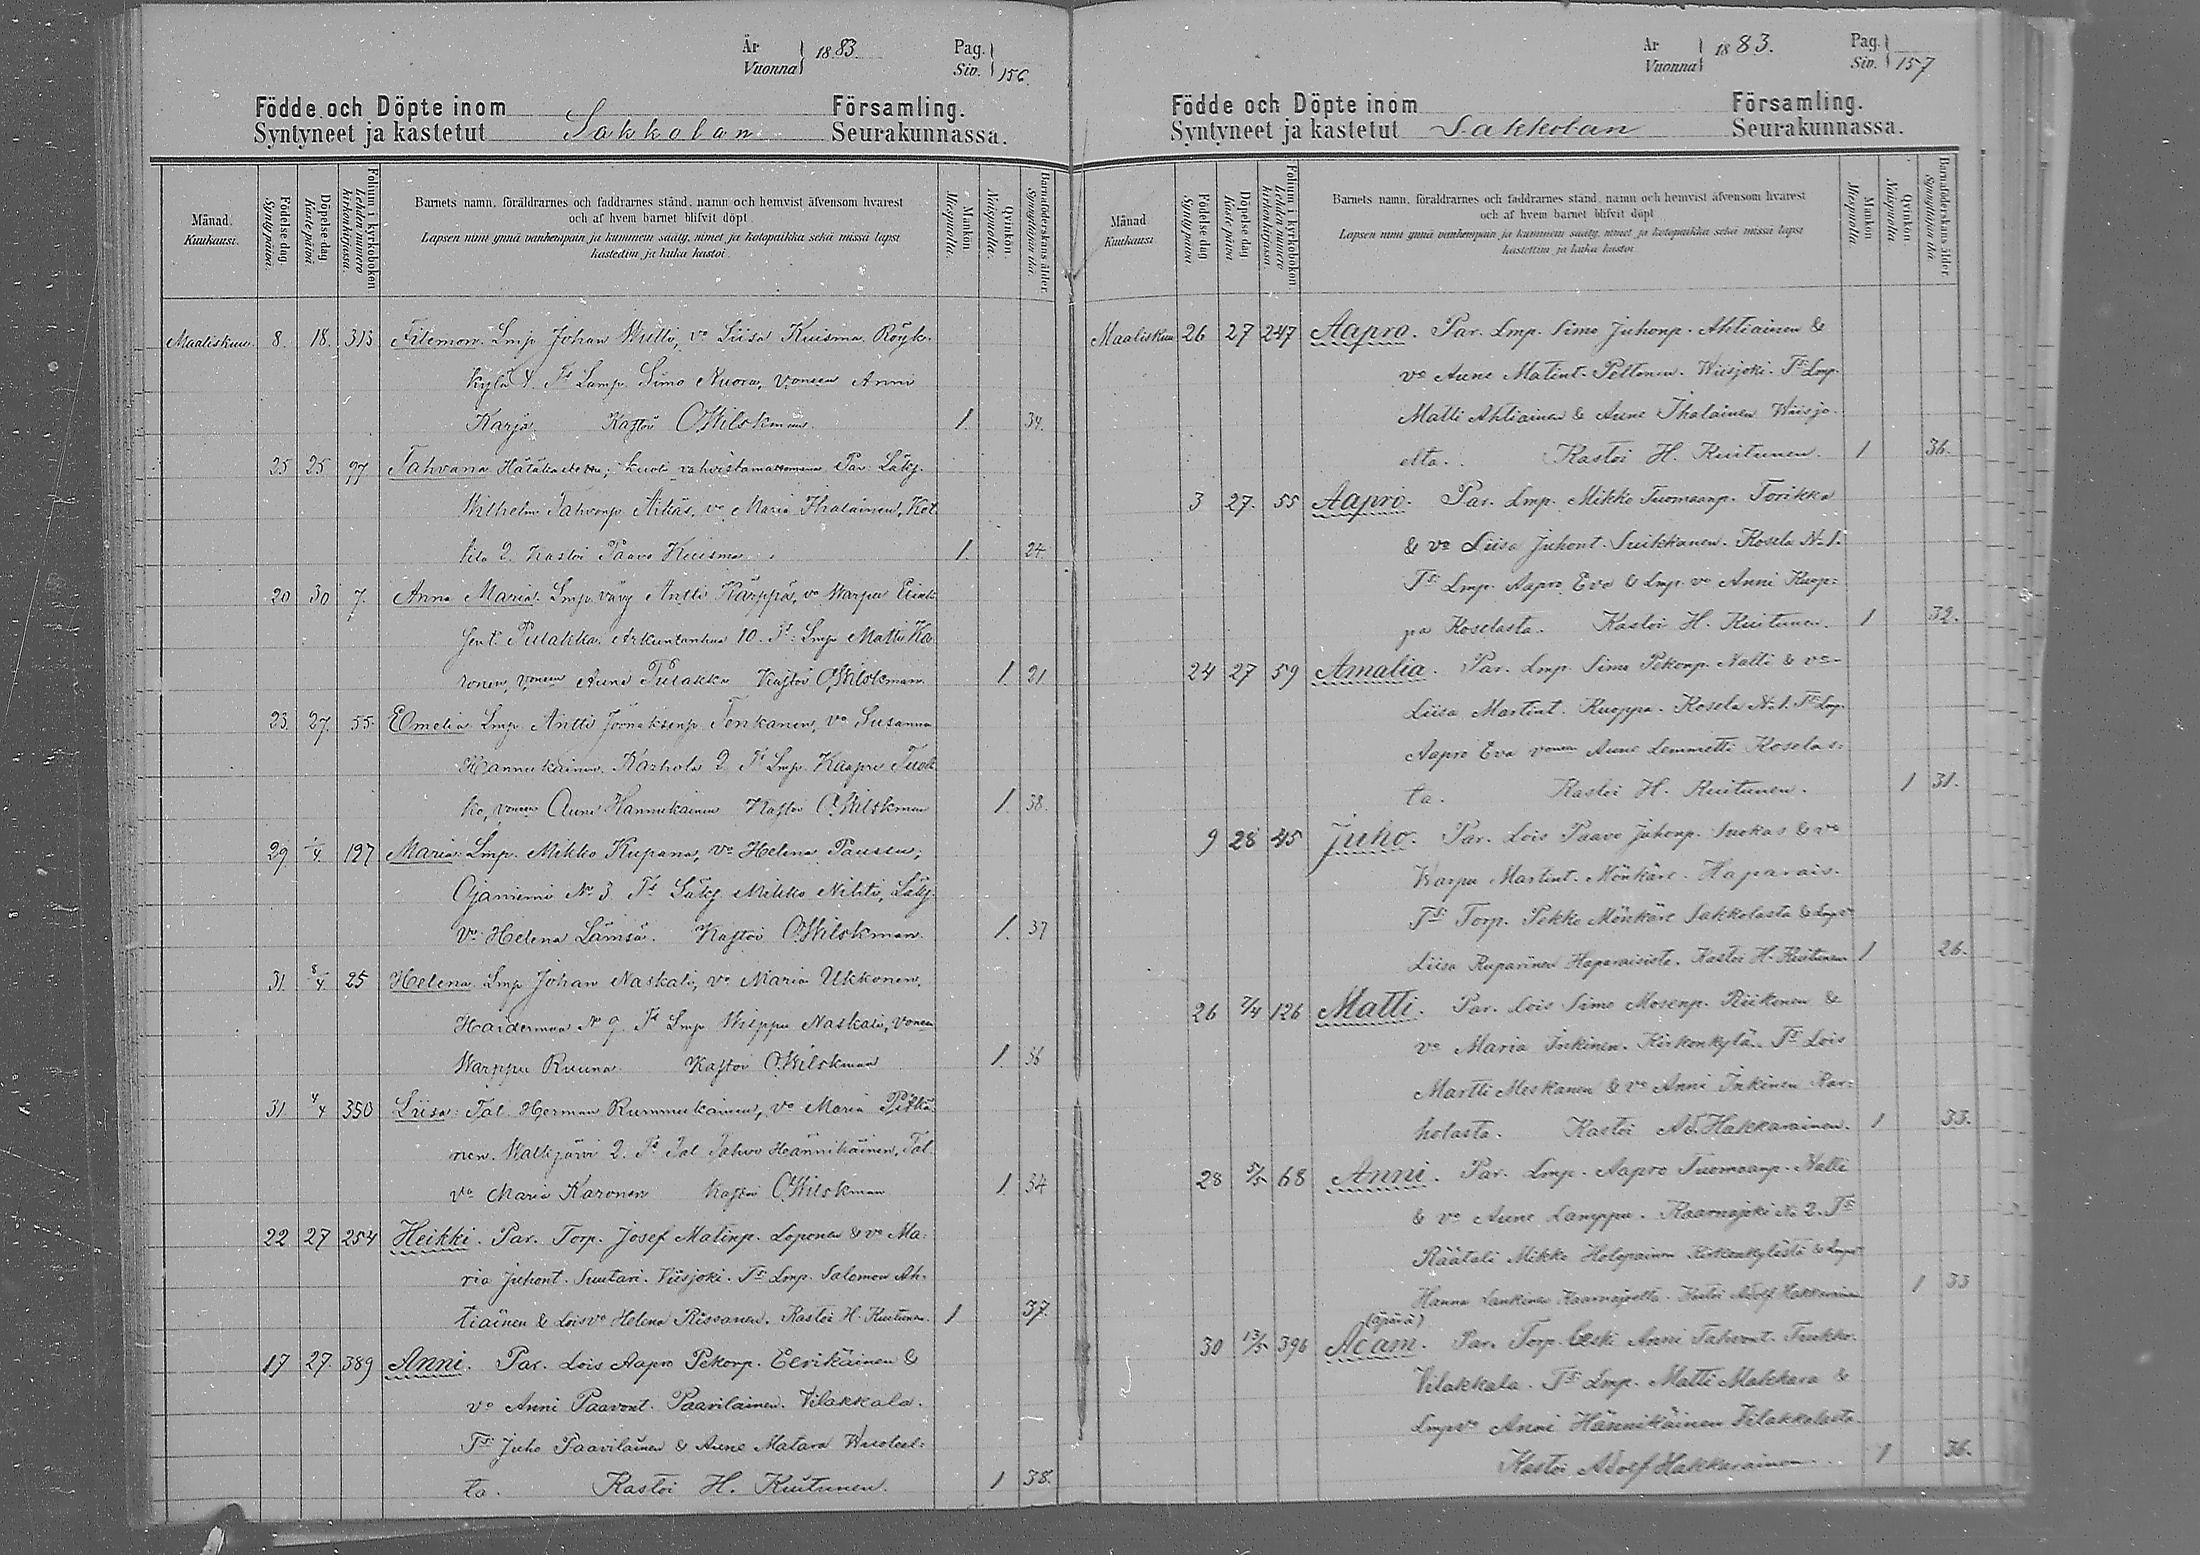 År
Vuonna 1883.
Pag.
Siv. 156.
Födde och Döpte inom Församling.
Syntyneet ja kastetut Sakkolan Seurakunnassa.
Månad.
Kuukausi.
Födelse dag
Syntypäivä.
Döpelse dag
Kastepäivä.
Folium i kyrkoboken
Lehden numero kirkonkirjassa.
Barnets namn, föräldrarnes och faddrarnes stånd, namn och hemvist äfvensom hvarest
och af hvem barnet blifvit döpt.
Lapsen nimi ynnä vanhempain ja kummein sääty, nimet ja kotopaikka sekä missä lapsi
kastettiin ja kuka kastoi.
Mankön.
Miespuolia.
Qvinkön.
Naispuolia.
Barnaföderskans ålder.
Synnyttäjän ikä.
Maaliskuu. 8. 18. 313 Filemon. Lmp Johan Wutti, vo Liisa Kuisma. Röyk-
kylä 4. Ts Lamp. Simo Nuora, vonsa Anni
Karja Kastoi O. Wilskman. 1. 34.
25 25 97 Tahvana Hätäkasteessa; kuoli vahvistamattomana. Par. Läkj.
Wilhelm Tahvonp Äikäs, vo Maria Ihalainen, Kot-
tila 2. Kastoi Paavo Kuisma 1. 24.
20 30 7. Anna Maria. Lmp. vävy Antti Kärppä, vo Warpu
Pulakka. 10. Ts: Lmp Matti Ka-
ronen, vonsa Anni Pulakka Kastoi O. Wilskman. 1. 21
23. 27. 55. Emelia Lmp. Antti Joonaksenp. Tenkanen, vo Susanna
Hannukainen. Karhola 2 Ts Lmp. Kaapre
vonsa Anni Hannukainen Kastoi O. Wilskman 1 38.
29 1/4 197 Maria: Lmp. Mikko Kupana, vo Helena Pausen;
Ojaniemi No 3 Ts Läkj Mikko Nikiti, Läkj.
Vo Helena Lämsä. Kastoi O. Wilskman. 1. 37
31. 8/4 25 Helena. Lmp Johan Naskali, vo Maria Ukkonen,
Haiderman No 9. Ts Lmp Naskali, vonsa
Warppu Ruuna Kastoi O. Wilskman 1. 36
31. 4/4 350 Liisa: Tal. Herman Rummukainen, vo Maria Pitkä-
nen. Walkjärvi 2. Ts Tal Tahvo Hännikäinen, Tal
vo Maria Karonen Kastoi O. Wilskman 1. 34
22 27 254 Heikki. Par. Torp. Josef Matinp. Loponen & vo Ma-
ria Juhont. Suutari. Viisjoki. Ts Lmp. Salomon Ah-
tiäinen & Lois vo Helena Rissanen. Kastoi H. Kuitunen. 1 37.
17 27. 389 Anni. Par. Lois Aapro Pekonp. Eerikäinen &
vo Anni Paavont. Paavilainen. Vilakkala.
Ts Juho Paavilainen & Anne Matara
ta. Kastoi H. Kuitunen. 1 38.
År
Vuonna 1883.
Pag.
Siv. 157
Födde och Döpte inom Församling.
Syntyneet ja kastetut Sakkolan Seurakunnassa.
Månad.
Kuukausi
Födelse dag
Syntypäivä
Döpelse dag
Kastepäivä
Folium i kyrkoboken
Lehden numero kirkonkirjassa
Barnets namn, föräldrarnes och faddrarnes stånd, namn och hemvist äfvensom hvarest
och af hvem barnet blifvit döpt
Lapsen nimi ynnä vanhempain ja kummein sääty, nimet ja kotopaikka sekä missä lapsi
kastettiin ja kuka kastoi
Mankön
Miespuolia
Qvinkön
Naispuolia
Barnaföderskans ålder
Synnyttäjän ikä
Maaliskuu 26 27 247 Aapro. Par. Lmp. Simo Juhonp. Ahtiainen &
vo Anne Matint. Peltonen. Wiisjoki. Ts Lmp.
Matti Ahtiainen & Anne Ihalainen Wiisjo-
elta. Kastoi H. Kuitunen. 1 36.
3 27. 55 Aapro. Par. Lmp. Mikko Tuomaanp. Torikka
& vo Liisa Juhont. Suikkanen. Kosela N.1.
Ts Lmp. Aapro Eva & Lmp. vo Anni Kuop-
pa Koselasta. Kastoi H. Kuitunen. 1 32.
24 27 59 Amalia. Par. Lmp. Simo Pekonp. Natti & vo
Liisa Martint. Kuoppa. Kosela No 1. Ts Lmp.
Aapro Eva vonsa Anne Lemmetti Koselas-
ta. Kastoi H. Kuitunen. 1 31.
9 28 45 Juho. Par. Lois Paavo Juhonp. Suokas & vo
Warpu Martint. Mönkäre. Haparais.
Ts Torp. Pekko Mönkäre Sakkolasta & Lmp vo
Liisa Ruparinen Haparaisista. Kastoi H. Kuitunen 1 26.
26 2/4 126 Matti. Par. Lois Simo Mosenp. Riikonen &
vo Maria Inkinen. Kirkonkylä. Ts Lois
Martti Meskanen & vo Anni Inkinen Kar-
holasta. Kastoi Ad. Hakkarainen. 1 33.
28 5/5 68 Anni. Par. Lmp. Aapro Tuomaanp. Natti
& vo Anne Lamppu. Kaarnajoki No 2. Ts
Räätäli Mikko Holopainen Kirkonkylästä & Lmp vo
Hanna Lankinen Kaarnajoelta. Kastoi Adolf Hakkarainen 1 33
(äpärä)
30 13/5 396 Adam. Par. Torp. leski Anni Tahvont. Trukko.
Vilakkala. Ts Lmp. Matti Makkara &
Lmp vo Anni Hännikäinen Vilakkalasta
Kastoi Adolf Hakkarainen. 1 36.